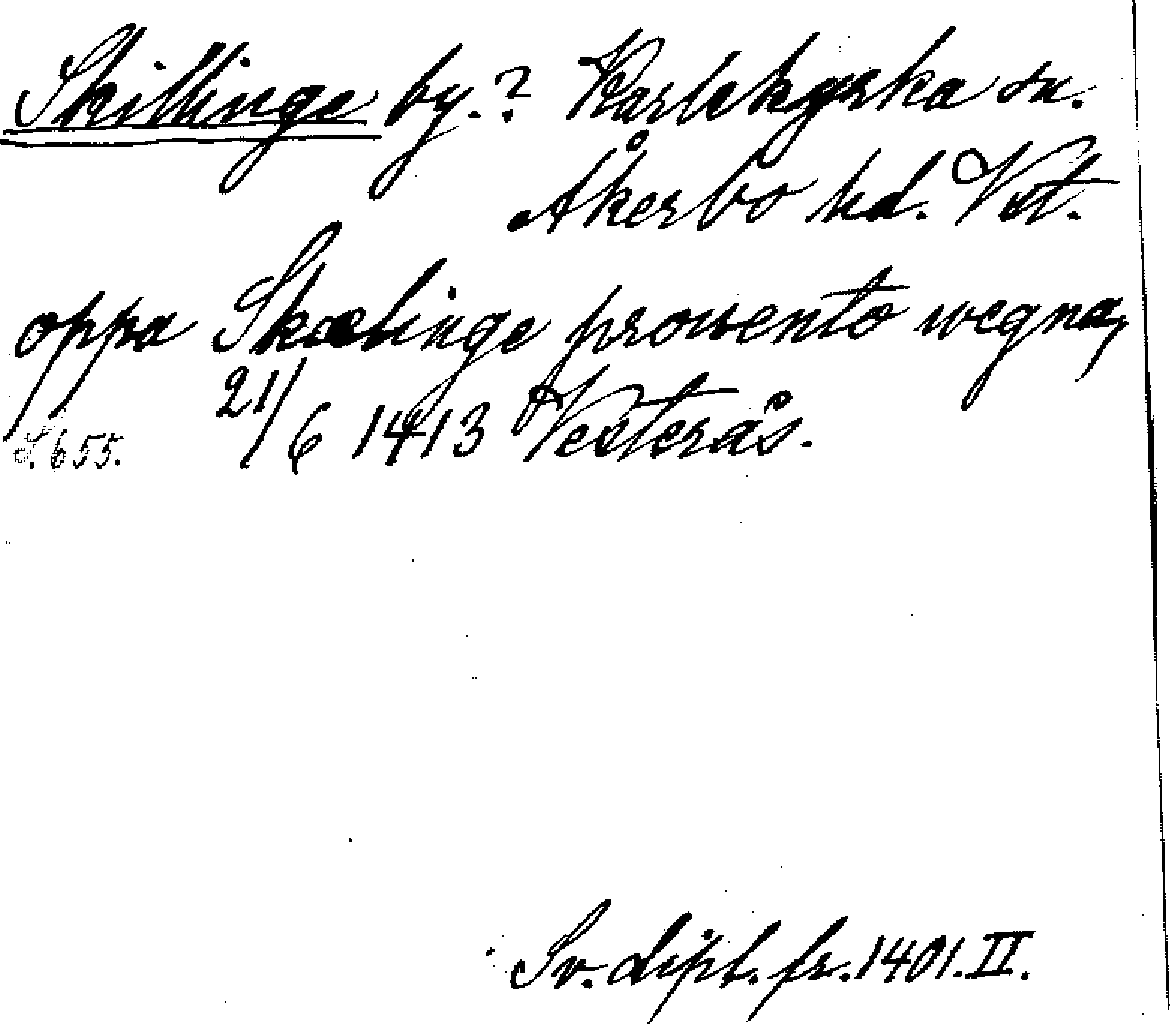 Skillinge by.? Karlskyrka sn.
Åkerbo hd. Vst.
oppa Skælinge prowento wegna,
21/6 1413 Vesterås.
S. 655.
Sv. dipl. fr. 1401. II.